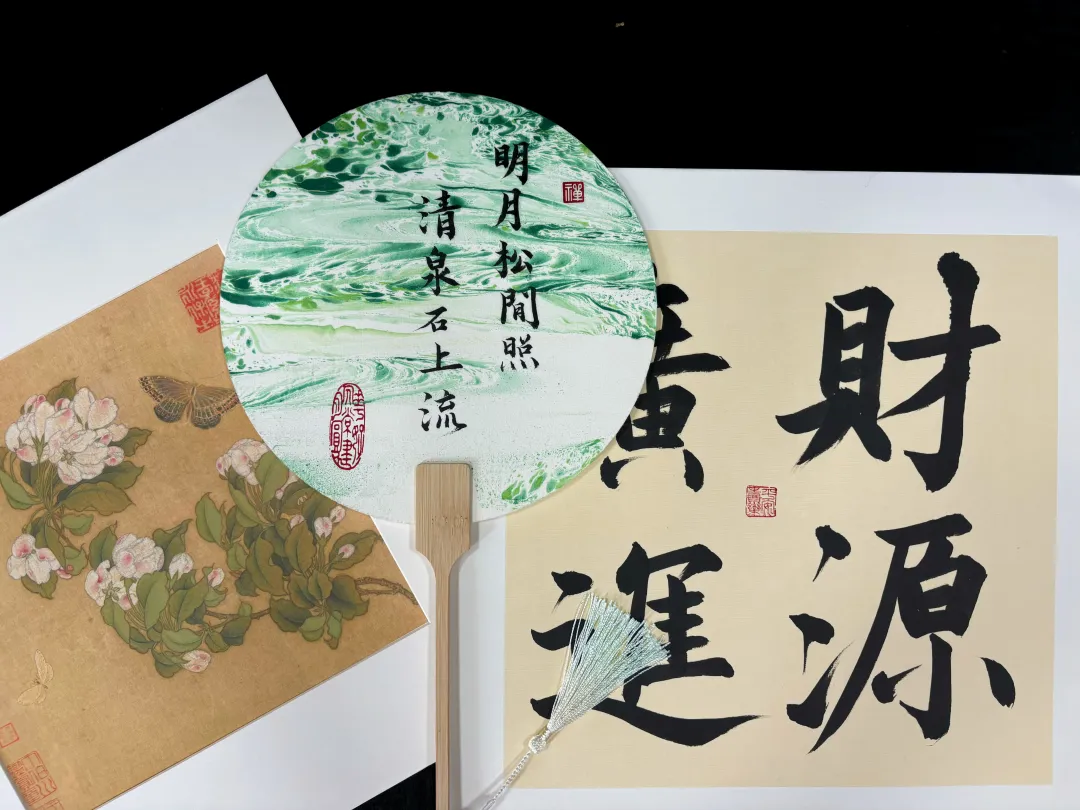 明月松間照
清泉石上流
禪
財源
廣進